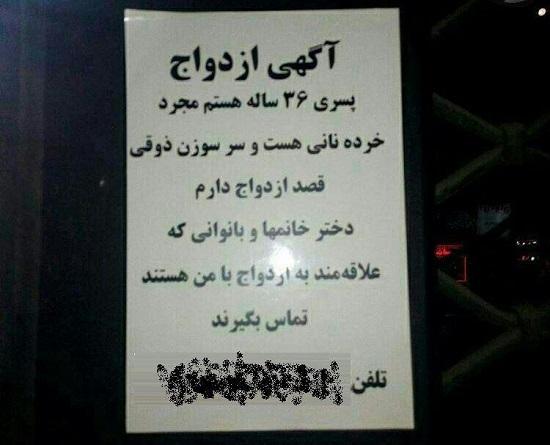 آگهی ازدواج
پسری ۳۶ ساله هستم مجرد
خرده نانی هست و سر سوزن ذوقی
قصد ازدواج دارم
دختر خانمها و بانوانی که
علاقه‌مند به ازدواج با من هستند
تماس بگیرند
تلفن